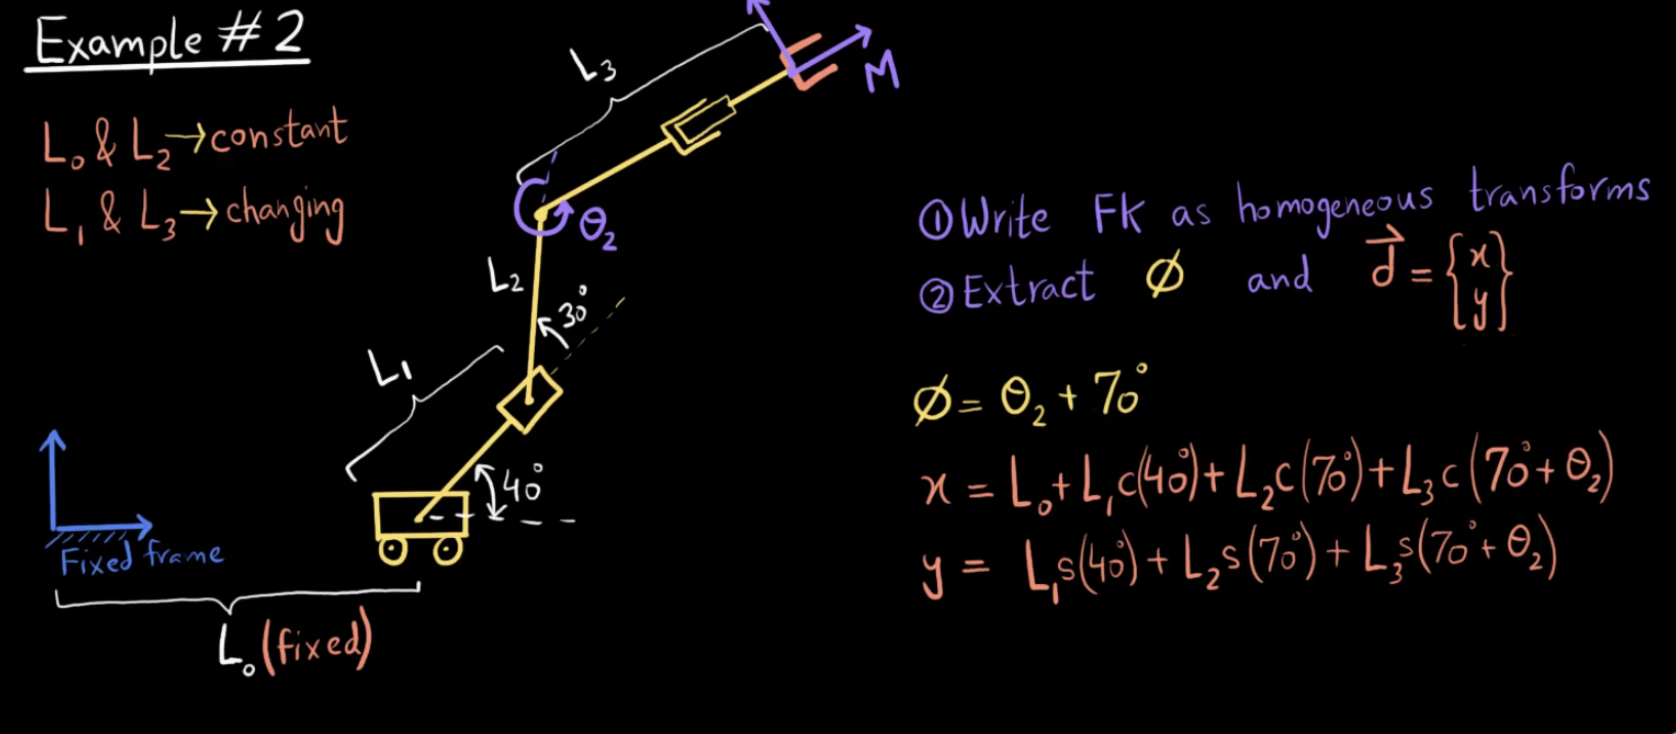 Example #2
L₀ & L₂ → constant
L₁ & L₃ → changing
L₃
M
θ₂
L₂
30°
L₁
40°
Fixed frame
L₀ (fixed)
① Write FK as homogeneous transforms
② Extract ø and d⃗ = {x y}
ø = θ₂ + 70°
x = L₀ + L₁c(40°) + L₂c(70°) + L₃c(70° + θ₂)
y = L₁s(40°) + L₂s(70°) + L₃s(70° + θ₂)